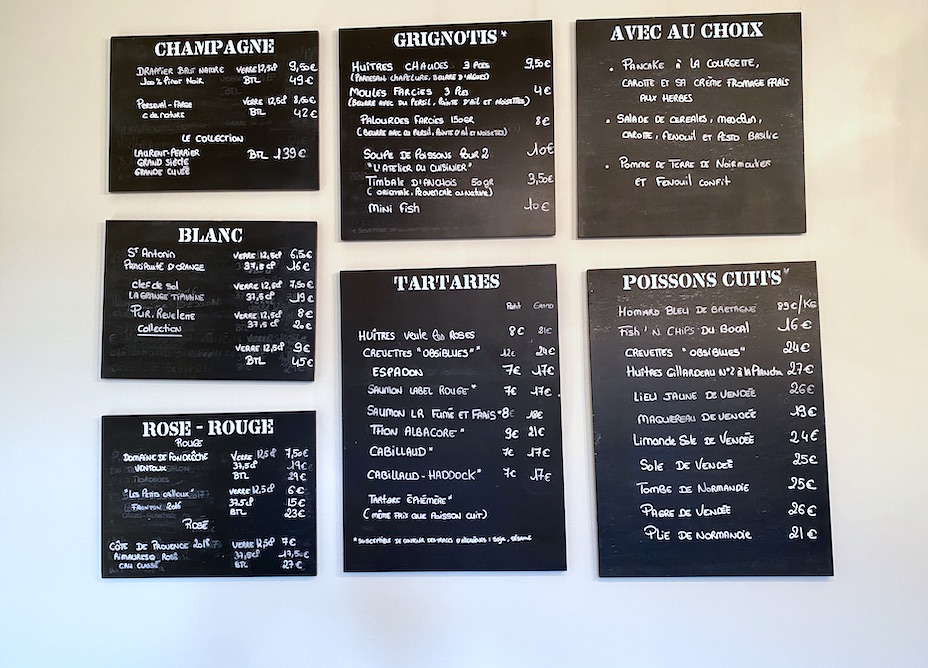 CHAMPAGNE
DRAPPIER BRUT NATURE VERRE 12,5cl 9,50€
100% PINOT NOIR BTL 49€
PERSEVAL - FARGE VERRE 12,5cl 8,50€
C de nature BTL 42€
LE COLLECTION
LAURENT-PERRIER BTL 139€
GRAND SIECLE
GRANDE CUVÉE
BLANC
St Antonin VERRE 12,5cl 6,50€
PRINCIPAUTÉ D'ORANGE 37,5cl 16€
clef de sol VERRE 12,5cl 7,50€
LA GRANGE TIPHAINE 37,5cl 19€
PUR. VERRE 12,5cl 8€
Collection 37,5cl 20€
VERRE 12,5cl 9€
BTL 45€
ROSE - ROUGE
ROUGE
DOMAINE DE FONDRÈCHE VERRE 12,5cl 7,50€
VENTOUX 37,5cl 19€
BTL 29€
"LES PETITS CAILLOUX" VERRE 12,5cl 6€
FRONTON 2016 37,5cl 15€
BTL 23€
ROSÉ
CÔTE DE PROVENCE 2018 VERRE 12,5cl 7€
RIMAURESQ ROSÉ 37,5cl 17,50€
CRU CLASSÉ BTL 27€
GRIGNOTIS*
HUÎTRES CHAUDES 3 PCES 9,50€
(PARMESAN, CHAPELURE, BEURRE D'ALGUES)
MOULES FARCIES 3 PCES 4€
(BEURRE AVEC DU PERSIL, POINTE D'AIL ET NOISETTES)
PALOURDES FARCIES 150GR 8€
(BEURRE AVEC DU PERSIL, POINTE D'AIL ET NOISETTES)
SOUPE DE POISSONS POUR 2 10€
"L'ATELIER DU CUISINIER"
TIMBALE D'ANCHOIS 50GR 3,50€
(ORIENTALE, PROVENCALE OU NATURE)
MINI FISH 10€
TARTARES
PETIT GRAND
HUÎTRES VEULE LES ROSES 8€ 21€
CREVETTES "OBSIBLUES"* 12€ 24€
ESPADON 7€ 17€
SAUMON LABEL ROUGE* 7€ 17€
SAUMON LR FUMÉ ET FRAIS* 8€ 18€
THON ALBACORE* 9€ 21€
CABILLAUD* 7€ 17€
CABILLAUD-HADDOCK* 7€ 17€
TARTARE ÉPHÉMÈRE*
(MÊME PRIX QUE POISSON CUIT)
*SUSCEPTIBLE DE CONTENIR DES TRACES D'ALLERGÈNES : SOJA, SÉSAME
AVEC AU CHOIX
• PANCAKE À LA COURGETTE,
CAROTTE ET SA CRÈME FROMAGE FRAIS
AUX HERBES
• SALADE DE CEREALES, MESCLUN,
CAROTTE, FENOUIL ET PESTO BASILIC
• POMME DE TERRE DE NOIRMOUTIER
ET FENOUIL CONFIT
POISSONS CUITS*
HOMARD BLEU DE BRETAGNE 89€/KG
FISH'N CHIPS DU BOCAL 16€
CREVETTES "OBSIBLUES" 24€
HUÎTRES GILLARDEAU N°2 à la Plancha 27€
LIEU JAUNE DE VENDÉE 26€
MAQUEREAU DE VENDÉE 19€
LIMANDE SOLE DE VENDÉE 24€
SOLE DE VENDÉE 25€
TOMBE DE NORMANDIE 25€
PAGRE DE VENDÉE 26€
PLIE DE NORMANDIE 21€